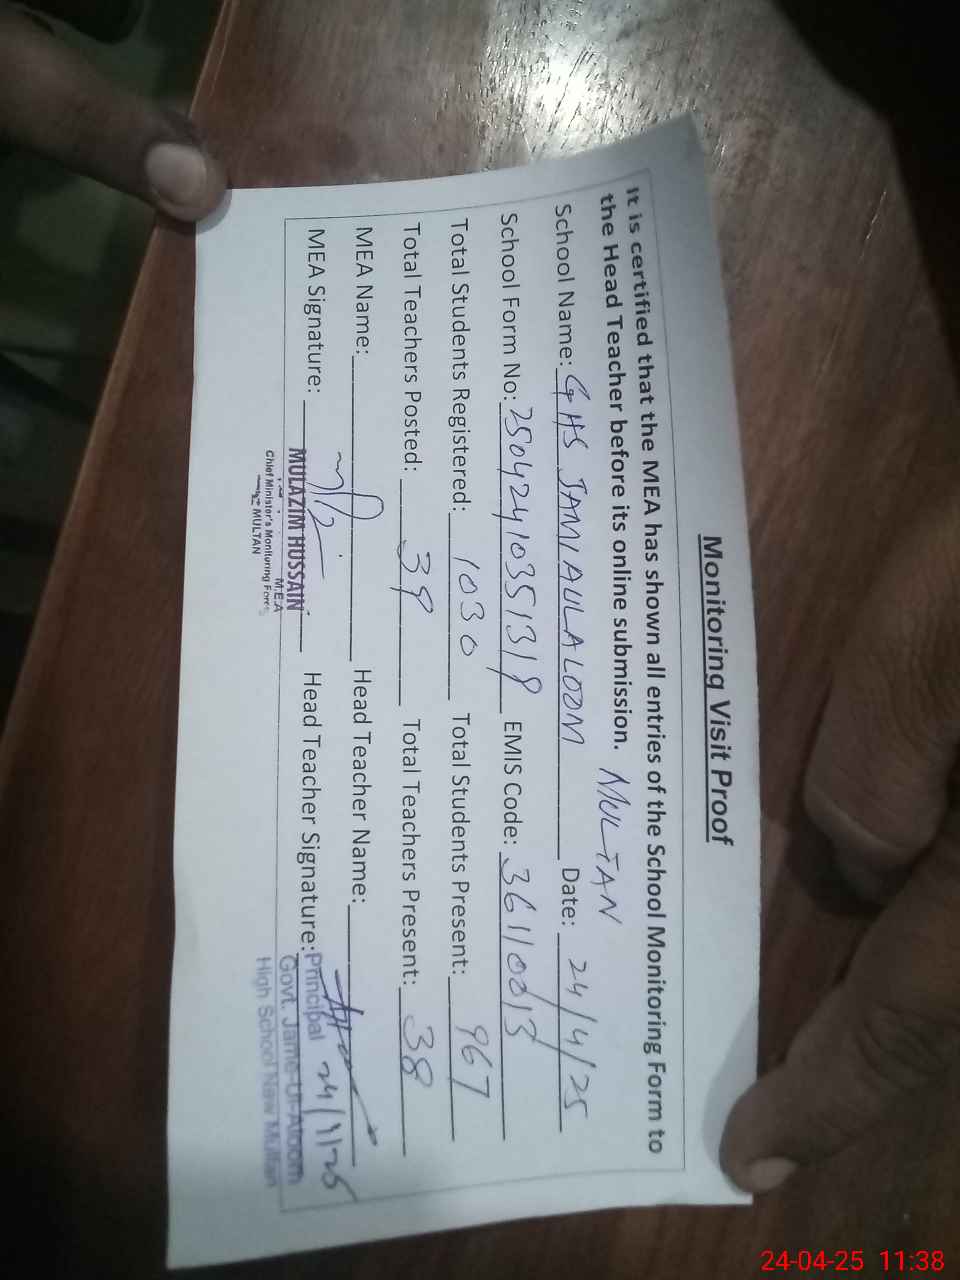 Monitoring Visit Proof
It is certified that the MEA has shown all entries of the School Monitoring Form to
the Head Teacher before its online submission. MULTAN
School Name: GHS JAMIAULALOOM Date: 24/4/25
School Form No: 25042410351319 EMIS Code: 36110013
Total Students Registered: 1030 Total Students Present: 967
Total Teachers Posted: 39 Total Teachers Present: 38
MEA Name: Head Teacher Name:
MEA Signature: Head Teacher Signature:
MULAZIM HUSSAIN
M.E.A
Chief Minister's Monitoring Force
MULTAN
Principal 24/4/25
Govt. Jame-Ul-Aloom
High School New Multan
24-04-25 11:38